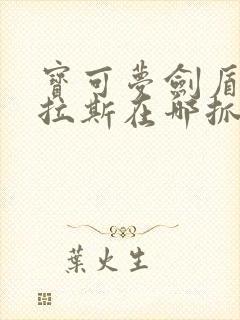 寶可夢劍盾
拉斯在哪抓
葉火生